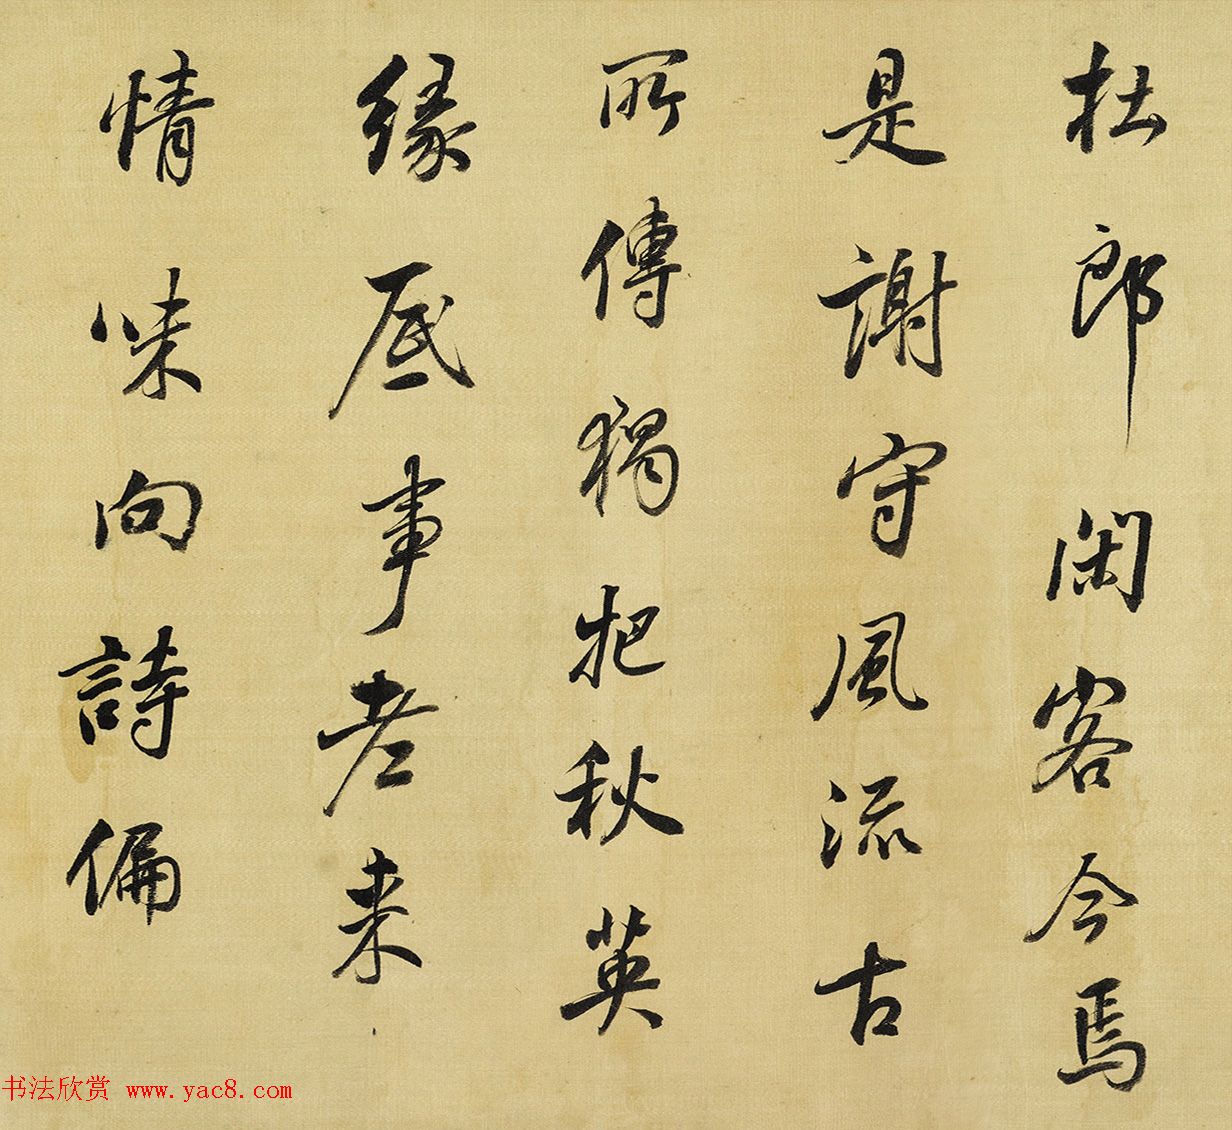 杜郎闲客今焉
是謝守風流古
所傳獨把秋英
缘底事老来
情味向詩偏
书法欣赏 www.yac8.com